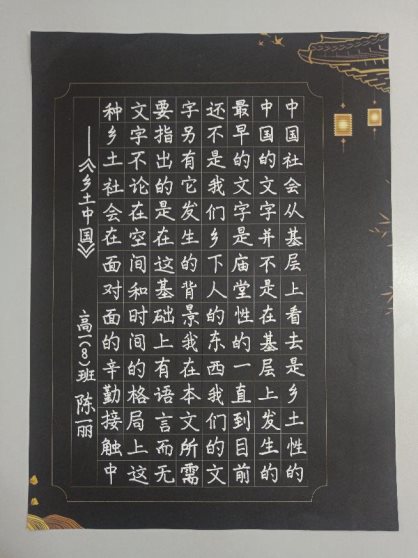 中国社会从基层上看去是乡土性的
中国的文字并不是在基层上发生的
最早的文字是庙堂性的一直到目前
还不是我们乡下人的东西我们的文
字另有它发生的背景我在本文所需
要指出的是在这基础上有语言而无
文字不论在空间和时间的格局上这
种乡土社会在面对面的辛勤接触中
——《乡土中国》
高一(8)班 陈一丽